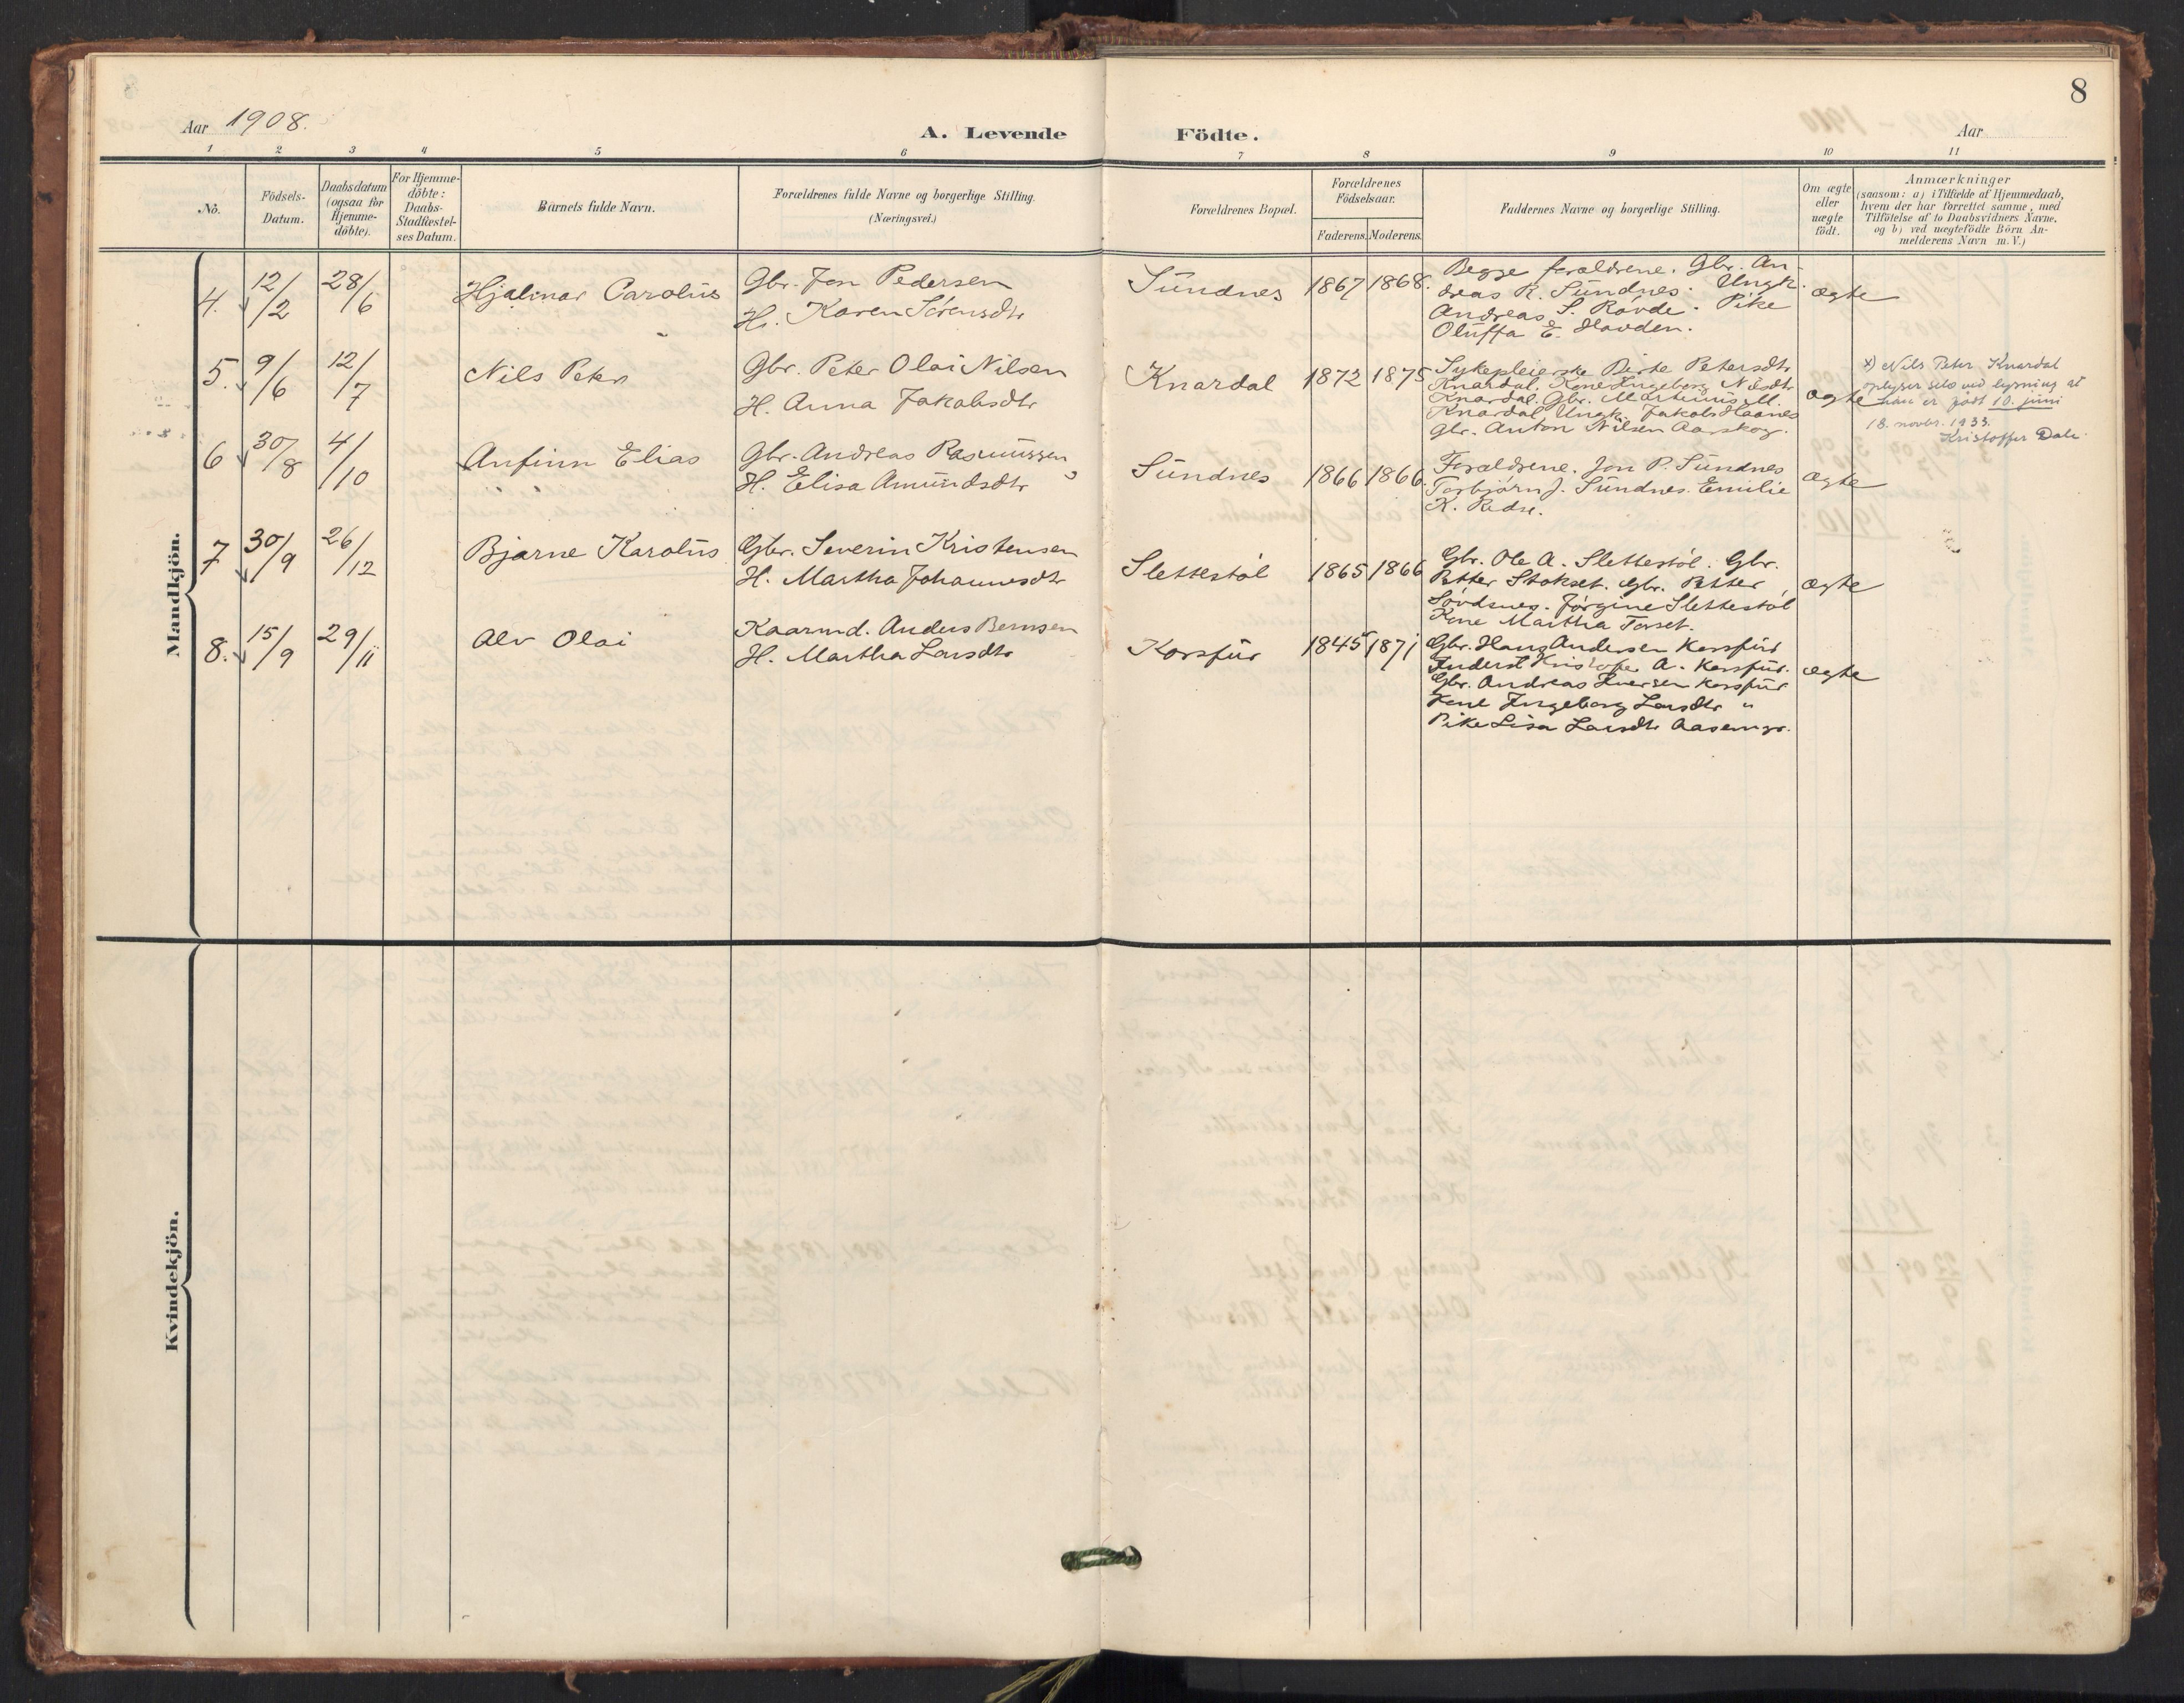 8
Aar 1908.
A. Levende Födte.
Aar
1 2 3 4 5 6 7 8 9 10 11
No.
Födsels-
Datum.
Daabsdatum
(ogsaa for
Hjemme-
döbte).
For Hjemme-
döbte:
Daabs-
Stadfæstel-
ses Datum.
Barnets fulde Navn.
Forældrenes fulde Navne og borgerlige Stilling.
(Næringsvei.)
Forældrenes Bopæl.
Forældrenes
Födselsaar.
Faderens. Moderens.
Faddernes Navne og borgerlige Stilling.
Om ægte
eller
uægte
födt.
Anmærkninger
(saasom: a) i Tilfælde af Hjemmedaab,
hvem der har forrettet samme, med
Tilföielse af to Daabsvidners Navne,
og b) ved uægtefödte Börn An-
melderens Navn m. V.)
Mandkjön.
4. 12/2 28/6 Hjalmar Carolus
Gbr. Jon Pedersen
H. Karen Sörensdtr
Sundnes 1867 1868.
Begge forældrene. Gbr. An-
dreas R. Sundnes. Ungk.
Andreas S. Røvde. Pike
Oluffa E. Hovden.
ægte
5. 9/6 12/7 Nils Peter
Gbr. Peter Olai Nilsen
H. Anna Jakobsdtr
Knardal 1872 1875
Sykepleierske Birte Petersdtr
Knardal. Kone Ingeborg Nilsdtr
Knardal. Gbr. Martinus M.
Knardal Ungk. Jakob Haanes
Gbr. Anton Nilsen Aarskog.
ægte
x) Nils Peter Knardal
oplyser selv ved lysning at
han er født 10. juni
18. novbr. 1933.
Kristoffer Dale.
6 30/8 4/10 Anfinn Elias
Gbr. Andreas Rasmussen
H. Elisa Amundsdtr
Sundnes 1866 1866.
Forældrene. Jon P. Sundnes
Torbjørn J. Sundnes. Emilie
K.
ægte
7 30/9 26/12 Bjarne Karolus
Gbr. Severin Kristensen
H. Martha Johannesdtr
Slettestöl 1865 1866
Gbr. Ole A. Slettestöl. Gbr.
Petter Stokset. Gbr. Petter
Sövdsnes. Jörgine Slettestöl
Kone Martha Torset.
ægte
8. 15/9 29/11 Alv Olai
Kaarmd. Anders Bernsen
H. Martha Larsdtr
Korsfur 1845 1871
Gbr. Hans Andersen Korsfur
Kristofer A. Korsfur.
Gbr. Andreas Iversen Korsfur
Kone Ingeborg Larsdtr "
Pike Lisa Larsdtr
ægte
Kvindekjön.